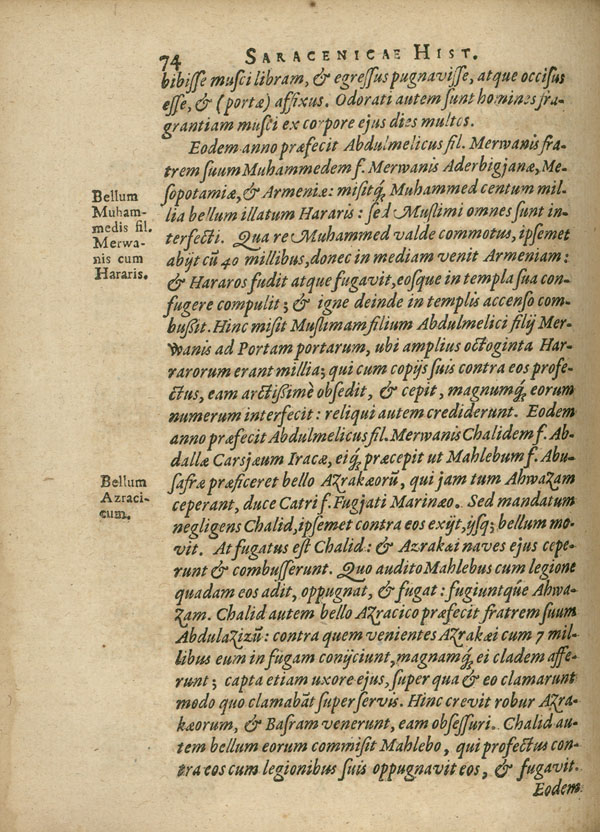 74 SARACENICAE HIST.
bibisse musci libram, & egressus pugnavisse, atque occisus
esse, & (portæ) affixus. Odorati autem sunt homines fra-
grantiam musci ex corpore ejus dies multos.
Eodem anno præfecit Abdulmelicus fil. Merwanis fra-
trem suum Muhammedem f. Merwanis Aderbigjanæ, Me-
sopotamiæ, & Armeniæ: misitq́; Muhammed centum mil-
lia bellum illatum Hararis: sed Muslimi omnes sunt in-
terfecti. Qua re Muhammed valde commotus, ipsemet
abijt cū 40 millibus, donec in mediam venit Armeniam:
& Hararos fudit atque fugavit, eosque in templa sua con-
fugere compulit; & igne deinde in templis accenso com-
bußit. Hinc misit Muslimam filium Abdulmelici filij Mer-
wanis ad Portam portarum, ubi amplius octoginta Har-
rarorum erant millia; qui cum copijs suis contra eos profe-
ctus, eam arctißimè obsedit, & cepit, magnumq́; eorum
numerum interfecit: reliqui autem crediderunt. Eodem
anno præfecit Abdulmelicus fil. Merwanis Chalidem f. Ab-
dallæ Carsjæum Iracæ, eiq́; præcepit ut Mahlebum f. Abu-
safræ præficeret bello Azrakæorū, qui jam tum Ahwazam
ceperant, duce Catri f. Fugjati Marinæo. Sed mandatum
negligens Chalid, ipsemet contra eos exijt, ijsq; bellum mo-
vit. At fugatus est Chalid: & Azrakæi naves ejus cepe-
runt & combusserunt. Quo audito Mahlebus cum legione
quadam eos adit, oppugnat, & fugat: fugiuntq́ue Ahwa-
zam. Chalid autem bello Azracico præfecit fratrem suum
Abdulazizū: contra quem venientes Azrakæi cum 7 mil-
libus eum in fugam conijciunt, magnamq́; ei cladem affe-
runt; capta etiam uxore ejus, super qua & eo clamarunt
modo quo clamabāt super servis. Hinc crevit robur Azra-
kæorum, & Basram venerunt, eam obsessuri. Chalid au-
tem bellum eorum commisit Mahlebo, qui profectus con-
tra eos cum legionibus suis oppugnavit eos, & fugavit.
Eodem
Bellum
Muham-
medis fil.
Merwa-
nis cum
Hararis.
Bellum
Azraci-
cum.